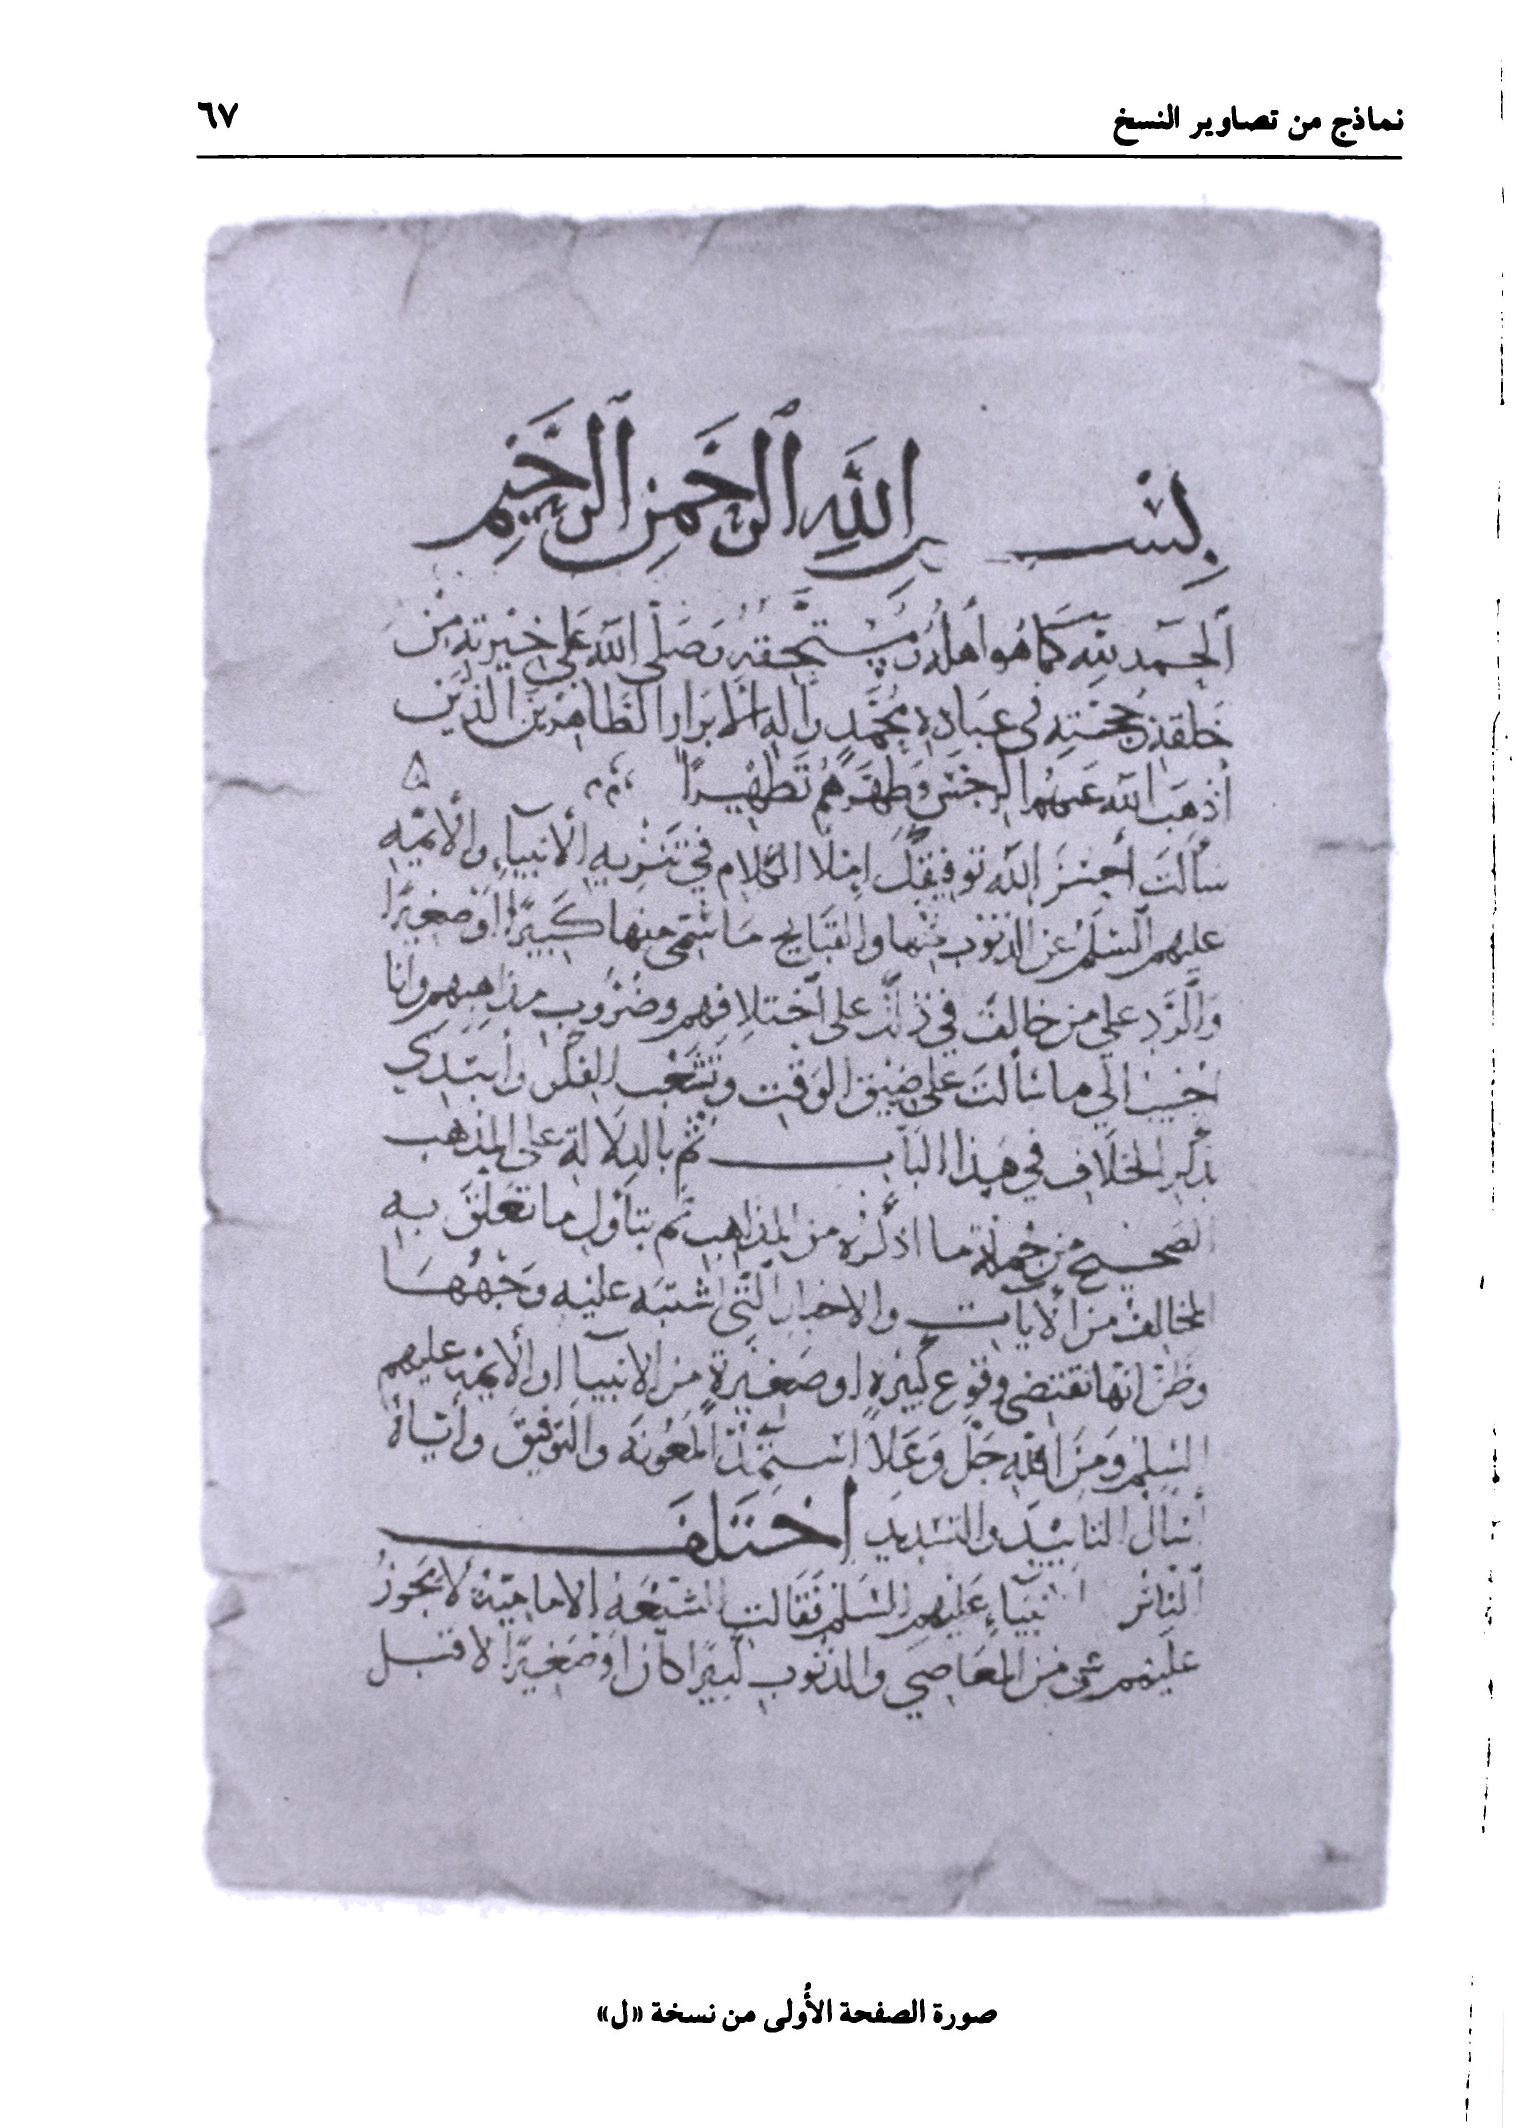 نماذج من تصاوير النسخ
٦٧
بِسْـــمِ اللَّهِ الرَّحْمَنِ الرَّحِيمِ
الحَمد لله كَمَا هُو أَهله وَمُسْتَحِقهُ وَصَلى الله عَلَى خِيْرَتِهِ مِنْ
خَلقه وحُجَّتِهِ فى عِبَادِهِ مُحَمَّدٍ وآلِهِ الأبرَار الطَّاهِرِينَ الَّذِيْنَ
أذهَبَ الله عَنهُم الرجْسَ وَطَهَّرَهُم تَطْهِيْرًا
سَأَلتَ أحْسَنَ الله تَوفيقكَ امِلَا الكَلام في تَنْزيهِ الأنبيآءِ والأئِمَّه
عليهم السَّلم عَن الذنُوب والقبَايح مَا سُمّى منها كَبيرًا اوْ صَغيرًا
والرَّد على من خالفَ في ذلك على آختلافِهم وضُرُوب مذاهِبهم وأنا
اجيب الي ما سَألتَ على ضيْق الوَقت وتشَعُّب الفِكْر وأبتدي
بذكر الخلَاف في هَذا البَابــــ ثُم بالدلالة على المذهب
الصَحيح من جُملة ما اذكرُه من المذاهب ثم بتأوُل ما تعَلقَ به
المخالفُ من الآياتـ والاخبار الَّتى اشتَبَه عليْه وَجْهُهَا
وظن انها تقتضى وقوع كبيْرهٍ او صَغيْرةٍ من الانبيآ او الأئِمّة عليهم
السلم ومنَ الله جلَّ وَعَلَا اسْتمِدُّ المَعُونَة والتوفيق وإيّاهُ
أسال التاييدَ والتسديد اخْتَلَفَـــــ
النّاسُ الأنبيَاءِ عَليهم السَّلم فقالت الشيعَة الاماميّة لا يَجوزُ
عليْهم شى من المعَاصي والذنوب كبيرًا كان اوْ صَغيرًا لا قبل
صورة الصفحة الأُولى من نسخة «ل»